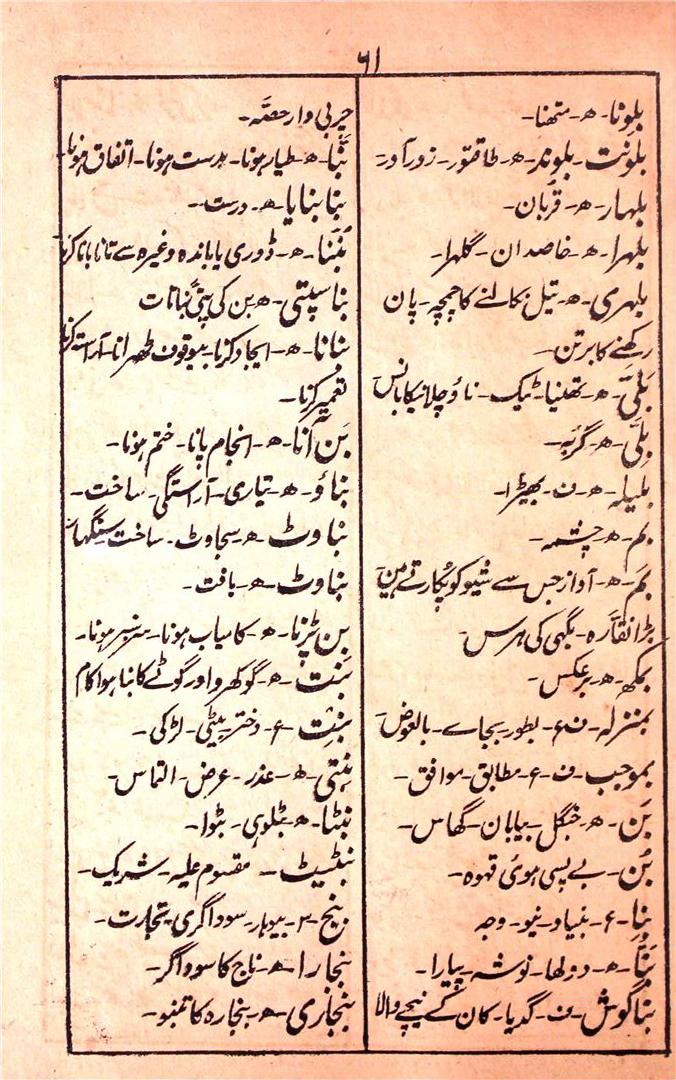 ۶۱
بلونا۔ ھ۔ متھنا۔
بلونت۔ بلوند۔ ھ۔ طاقتور۔ زور آور۔
بلہار۔ ھ۔ قربان۔
بلہرا۔ ھ۔ خاصدان۔ گلہرا۔
بلہری۔ ھ۔ تیل نکالنے کا چمچہ۔ پان
رکھنے کا برتن۔
بَلّی۔ ھ۔ تھنیا۔ ٹیک۔ ناؤ چلانیکا بانس
بِلّی۔ ھ۔ گربہ۔
بلیلہ۔ ھ۔ ف۔ بھیڑا۔
بم۔ ھ۔ چشمہ۔
بَم۔ ھ۔ آواز جس سے شیو کو پکارتے ہیں
بڑا نقارہ۔ بگھی کی ہرس۔
بمکھ۔ ھ۔ برعکس۔
بمنزلہ۔ ف ۶۔ بطور۔ بجاے۔ بالعوض۔
بموجب۔ ف۔ ۶۔ مطابق۔ موافق۔
بَن۔ ھ۔ جنگل۔ بیابان۔ گھاس۔
بُن۔ بے پسی ہوئی قہوہ۔
بِنا۔ ۶۔ بنیاد۔ نیو۔ وجہ
بَنّا۔ ھ۔ دولھا۔ نوشہ۔ پیارا۔
بناگوش۔ ف۔ گدیا۔ کان کے نیچے والا
چربی وار حصّہ۔
بَنّا۔ ھ۔ طیار ہونا۔ درست ہونا۔ اتفاق ہونا۔
بنا بنایا۔ ھ۔ درست۔
بُننا۔ ھ۔ ڈوری یا باندہ وغیرہ سے تانا بانا کرنا
بناسپتی۔ ھ۔ بن کی پتی نباتات
بنانا۔ ھ۔ ایجاد کرنا۔ بیوقوف ٹھرانا۔ آراستہ کرنا
تعمیر کرنا۔
بَن آنا۔ ھ۔ انجام پانا۔ ختم ہونا۔
بناؤ۔ ھ۔ تیاری۔ آراستگی۔ ساخت۔
بناوٹ۔ ھ۔ سجاوٹ۔ ساخت۔ سنگھار
بناوٹ۔ ھ۔ بافت۔
بن پڑنا۔ ھ۔ کامیاب ہونا۔ سرسبز ہونا۔
بَنت۔ ھ۔ گوکھرو اور گوٹے کا بنا ہوا کام
بنت۔ ۶۔ دختر۔ بیٹی۔ لڑکی۔
بنتی۔ ھ۔ عذر۔ عرض۔ التماس۔
بنٹا۔ ھ۔ بٹلوہی۔ بٹوا۔
بنٹیٹ۔ مقسوم علیہ۔ شریک۔
بنج۔ ۲۔ بیوپار۔ سوداگری۔ تجارت۔
بنجارا۔ ھ۔ ناج کا سوداگر۔
بنجاری۔ ھ۔ بنجارہ کا تمبو۔